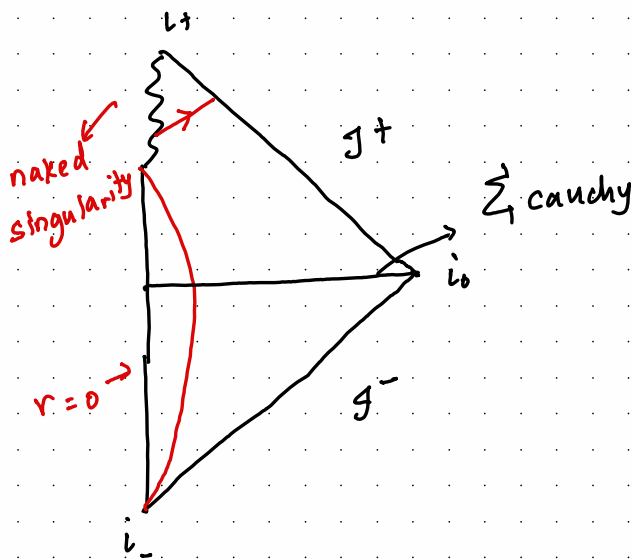 i+
J+
naked
singularity
Σ cauchy
i₀
r = 0
J⁻
i_